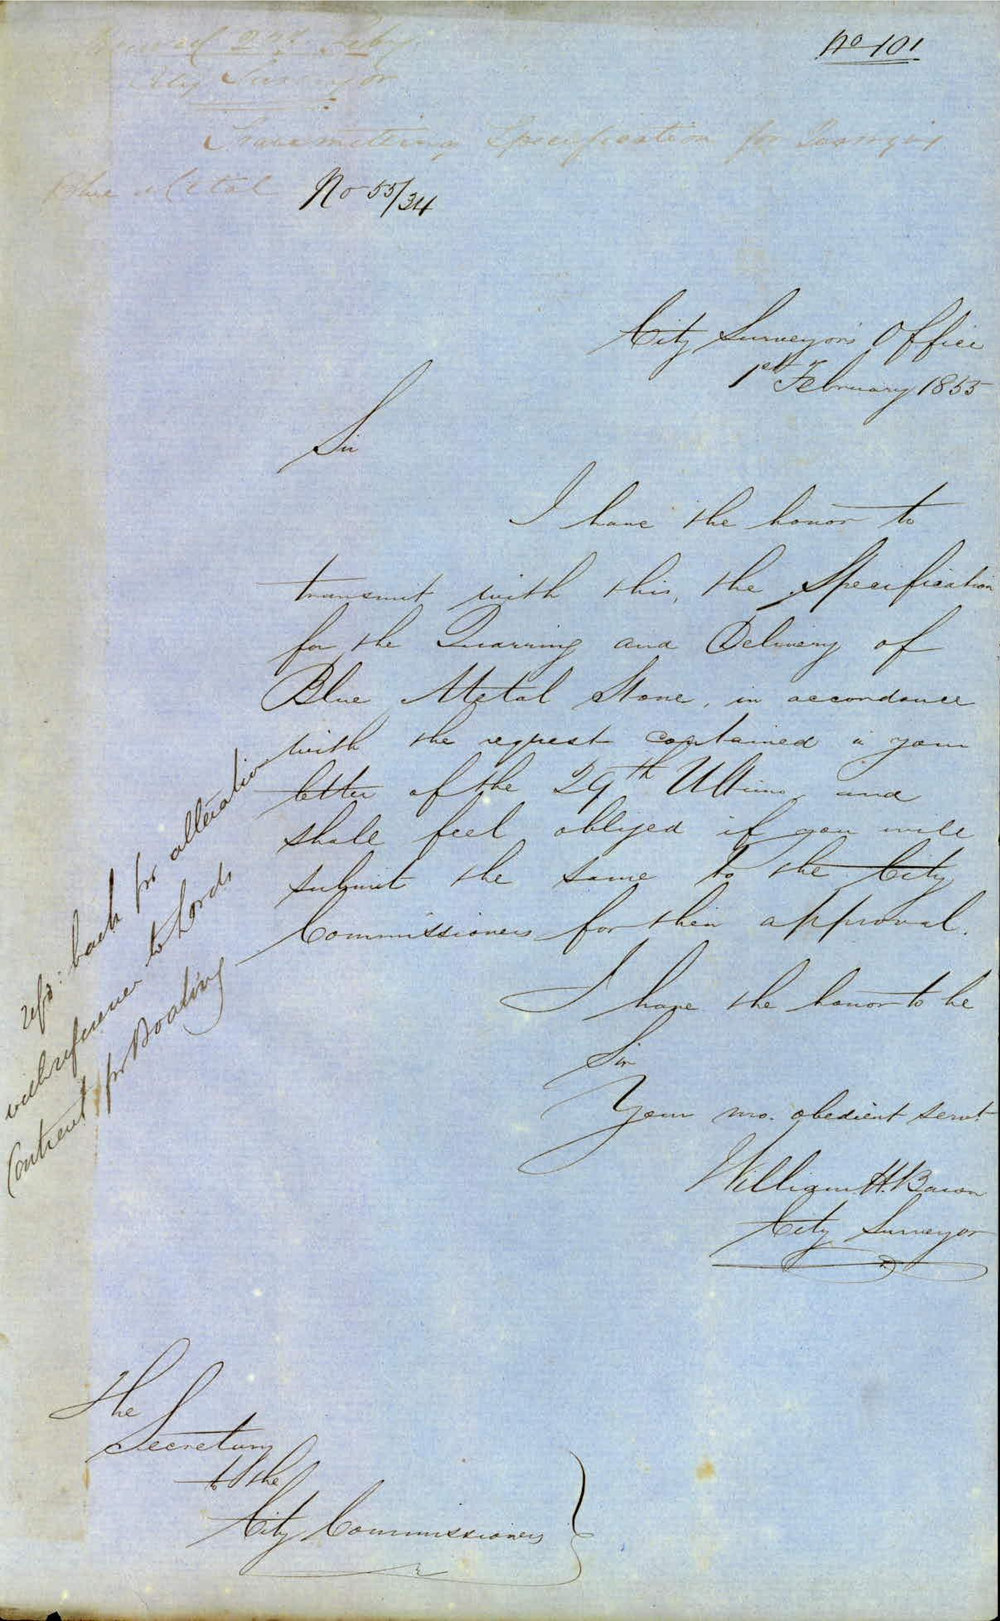 No 101
Received 2nd Feby
City Surveyor
Transmitting Specification for
Blue Metal
No 55/34
City Surveyor's Office
1st February 1855
Sir
I have the honor to
transmit with this, the Specification
for the Quarring and Delivery of
Blue Metal Stone, in accordance
with the request contained in your
letter of the 29th Ultimo, and
shall feel obliged if you will
submit the same to the City
Commissioners for their approval.
I have the honor to be
Sir
Your mo. obedient servt.
William H. Bacon
City Surveyor
refd: back for alteration
with reference to Lords
Contract for Boating
The
Secretary
to the
City Commissioners